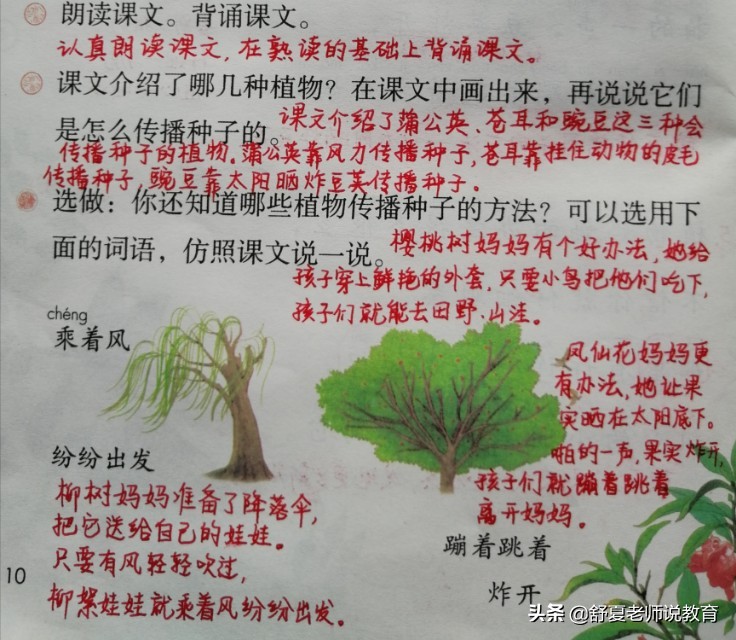 朗读课文。背诵课文。
认真朗读课文,在熟读的基础上背诵课文。
课文介绍了哪几种植物?在课文中画出来,再说说它们
是怎么传播种子的。课文介绍了蒲公英、苍耳和豌豆这三种会
传播种子的植物。蒲公英靠风力传播种子,苍耳靠挂住动物的皮毛
传播种子,豌豆靠太阳晒炸豆荚传播种子。
选做:你还知道哪些植物传播种子的方法?可以选用下
面的词语,仿照课文说一说。樱桃树妈妈有个好办法,她给
孩子穿上鲜艳的外套,只要小鸟把他们吃下,
孩子们就能去田野、山洼。
chéng
乘着风
凤仙花妈妈更
有办法,她让果
实晒在太阳底下。
啪的一声,果实炸开,
孩子们就蹦着跳着
离开妈妈。
纷纷出发
柳树妈妈准备了降落伞,
把它送给自己的娃娃。
只要有风轻轻吹过,
柳絮娃娃就乘着风纷纷出发。
蹦着跳着
炸开
10
头条 @舒夏老师说教育